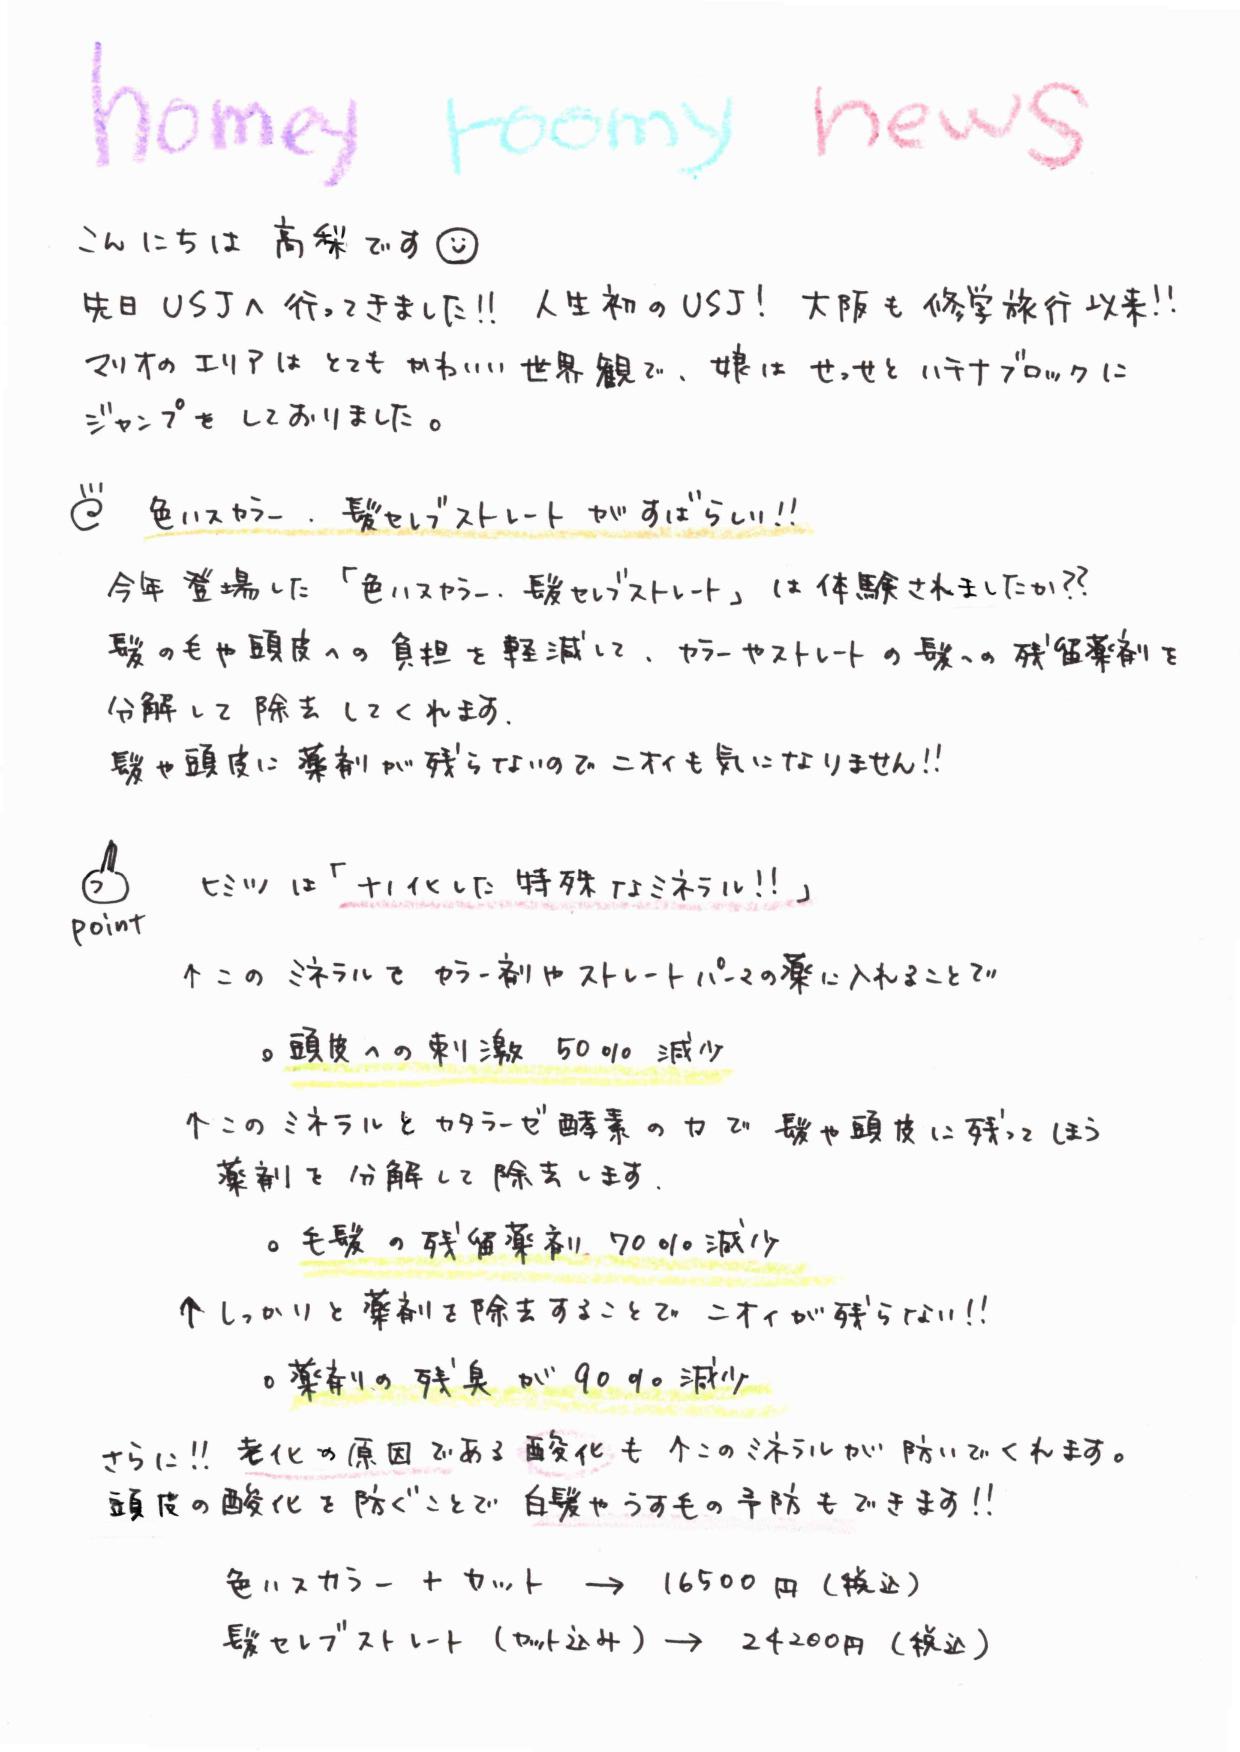 homey roomy news
こんにちは 高梨です
先日 USJへ 行ってきました!! 人生初のUSJ! 大阪も 修学旅行以来!!
マリオの エリアは とても かわいい 世界観で、娘は せっせと ハテナブロックに
ジャンプを しておりました。
色ハスカラー・髪セレブストレート が すばらしい!!
今年 登場した「色ハスカラー・髪セレブストレート」は 体験されましたか??
髪の毛や頭皮への 負担を 軽減して、カラーやストレートの 髪への 残留薬剤を
分解して 除去 してくれます.
髪や頭皮に 薬剤が 残らないので ニオイも気になりません!!
point
ヒミツ は「ナノ化した 特殊なミネラル!!」
↑この ミネラルを カラー剤や ストレートパーマの薬に入れることで
○ 頭皮への刺激 50% 減少
↑この ミネラルと カタラーゼ酵素 の 力 で 髪や頭皮に残ってしまう
薬剤を 分解して 除去します.
○ 毛髪 の 残留薬剤 70%減少
↑しっかりと 薬剤を除去することで ニオイが残らない!!
○ 薬剤の 残臭 が 90%減少
さらに!! 老化の原因である 酸化も ↑このミネラルが 防いでくれます。
頭皮の酸化を 防ぐことで 白髪やうす毛の予防もできます!!
色ハスカラー + カット → 16500円(税込)
髪セレブストレート (カット込み) → 24200円 (税込)